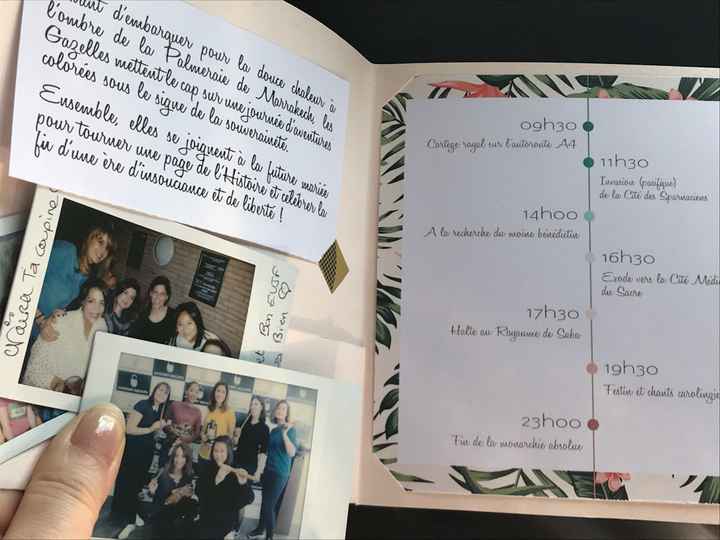 d'embarquer pour la douce chaleur à
l'ombre de la Palmeraie de Marrakech, les
Gazelles mettent le cap sur une journée d'aventures
colorées sous le signe de la souveraineté.
Ensemble, elles se joignent à la future mariée
pour tourner une page de l'Histoire et célébrer la
fin d'une ère d'insouciance et de liberté !
Ta copine
Bon EVJF
Bien
09h30
Cortège royal sur l'autoroute A4
11h30
Invasion (pacifique)
de la Cité des Sparnaciens
14h00
A la recherche du moine bénédictin
16h30
Exode vers la Cité
du Sacre
17h30
Halte au Royaume de Saba
19h30
Festin et chants
23h00
Fin de la monarchie absolue